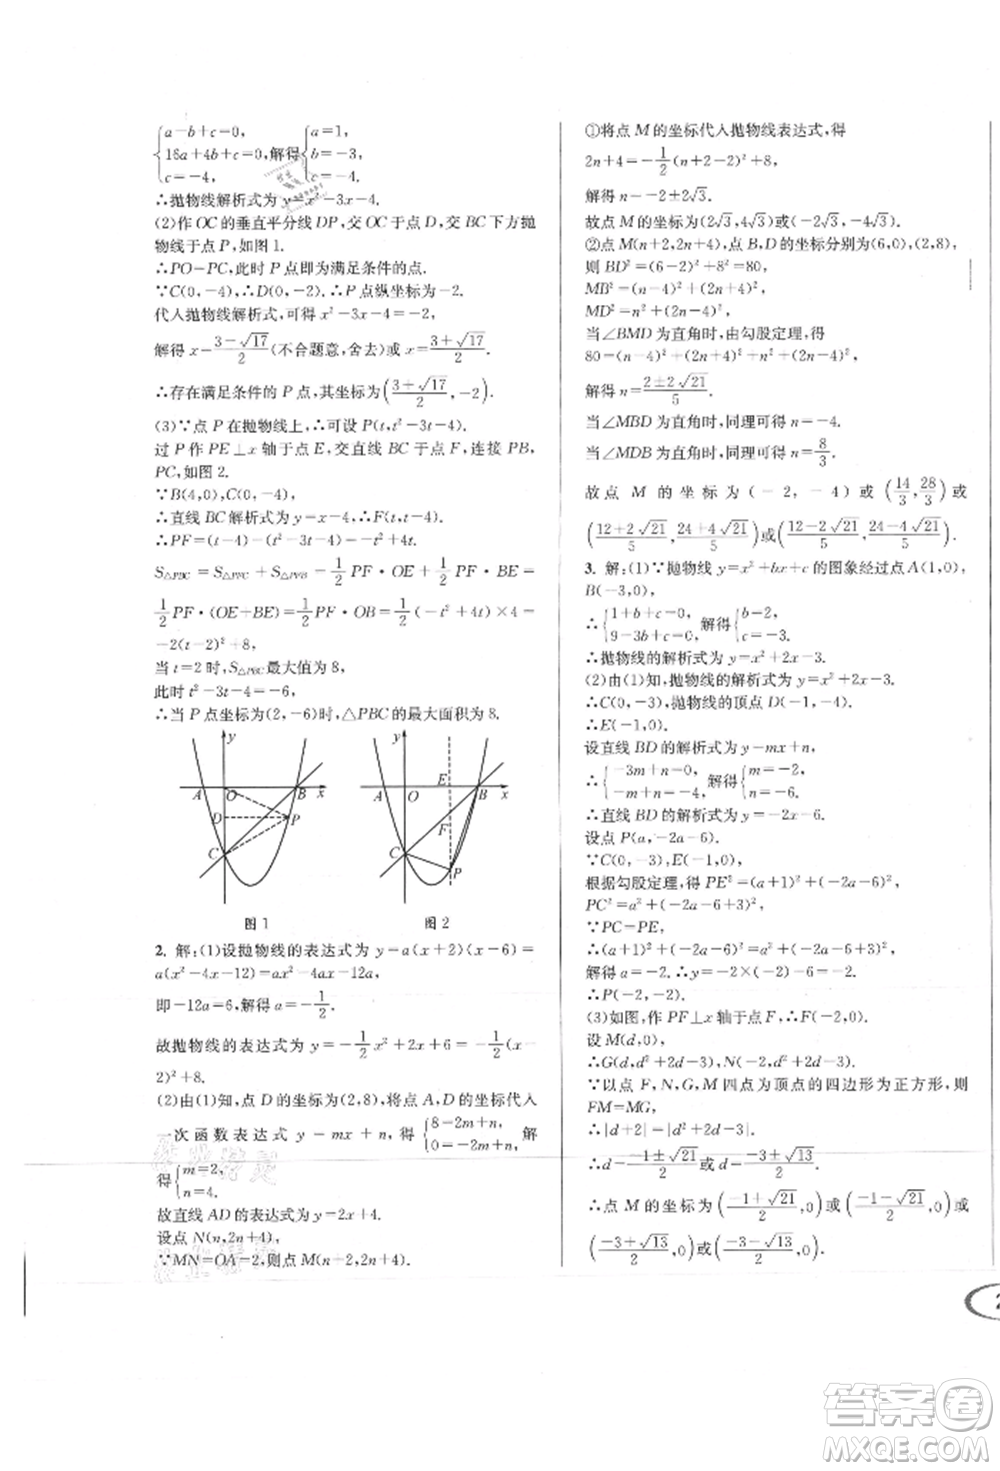 {a-b+c=0, 16a+4b+c=0, c=-4, 解得{a=1, b=-3, c=-4.
∴抛物线解析式为 y=x²-3x-4.
(2)作 OC的垂直平分线 DP,交 OC于点 D,交 BC下方抛
物线于点 P,如图 1.
∴PO-PC,此时 P 点即为满足条件的点.
∵C(0,-4),∴D(0,-2),∴P点纵坐标为-2.
代入抛物线解析式,可得 x²-3x-4=-2,
解得 x-(3-√17)/2(不合题意,舍去)或 x=(3+√17)/2.
∴存在满足条件的 P 点,其坐标为((3+√17)/2,-2).
(3)∵点 P 在抛物线上,∴可设 P(t,t²-3t-4).
过 P 作 PE⊥x 轴于点 E,交直线 BC 于点 F,连接 PB,
PC,如图 2.
∵B(4,0),C(0,-4),
∴直线 BC 解析式为 y=x-4,∴F(t,t-4).
∴PF=(t-4)-(t²-3t-4)=-t²+4t.
S△PBC=S△PFC+S△PFB=1/2 PF·OE+1/2 PF·BE=
1/2 PF·(OE+BE)=1/2 PF·OB=1/2(-t²+4t)×4=
-2(t-2)²+8,
当 t=2 时,S△PBC最大值为 8,
此时 t²-3t-4=-6,
∴当 P 点坐标为(2,-6)时,△PBC的最大面积为 8.
y
A O B x
D P
C
图 1
y
E
A O B x
F
C
P
图 2
2. 解:(1)设抛物线的表达式为 y=a(x+2)(x-6)=
a(x²-4x-12)=ax²-4ax-12a,
即-12a=6,解得 a=-1/2,
故抛物线的表达式为 y=-1/2x²+2x+6=-1/2(x-
2)²+8.
(2)由(1)知,点 D 的坐标为(2,8),将点 A,D 的坐标代入
一次函数表达式 y-mx+n,得{8-2m+n, 0=-2m+n, 解
得{m=2, n=4.
故直线 AD 的表达式为 y=2x+4.
设点 N(n,2n+4),
∵MN=OA=2,则点 M(n+2,2n+4).
①将点 M 的坐标代入抛物线表达式,得
2n+4=-1/2(n+2-2)²+8,
解得 n--2±2√3,
故点 M 的坐标为(2√3,4√3)或(-2√3,-4√3).
②点 M(n+2,2n+4),点 B,D 的坐标分别为(6,0),(2,8),
则 BD²=(6-2)²+8²=80,
MB²=(n-4)²+(2n+4)²,
MD²=n²+(2n-4)².
当∠BMD 为直角时,由勾股定理,得
80=(n-4)²+(2n+4)²+n²+(2n-4)²,
解得 n=(2±2√21)/5.
当∠MBD 为直角时,同理可得 n=-4.
当∠MDB 为直角时,同理可得 n=8/3.
故点 M 的坐标为(-2,-4)或(14/3,28/3)或
((12+2√21)/5,(24+4√21)/5)或((12-2√21)/5,(24-4√21)/5).
3. 解:(1)∵抛物线 y=x²+bx+c 的图象经过点 A(1,0),
B(-3,0),
∴{1+b+c=0, 9-3b+c=0, 解得{b=2, c=-3.
∴抛物线的解析式为 y=x²+2x-3.
(2)由(1)知,抛物线的解析式为 y=x²+2x-3,
∴C(0,-3),抛物线的顶点 D(-1,-4).
∴E(-1,0).
设直线 BD 的解析式为 y-mx+n,
∴{-3m+n=0, -m+n=-4, 解得{m=-2, n=-6.
∴直线 BD 的解析式为 y=-2x-6.
设点 P(a,-2a-6).
∵C(0,-3),E(-1,0),
根据勾股定理,得 PE²=(a+1)²+(-2a-6)²,
PC²=a²+(-2a-6+3)²,
∵PC-PE,
∴(a+1)²+(-2a-6)²=a²+(-2a-6+3)²,
解得 a=-2.∴y=-2×(-2)-6=-2.
∴P(-2,-2).
(3)如图,作 PF⊥x轴于点 F,∴F(-2,0).
设 M(d,0),
∴G(d,d²+2d-3),N(-2,d²+2d-3).
∵以点 F,N,G,M 四点为顶点的四边形为正方形,则
FM=MG,
∴|d+2|=|d²+2d-3|.
∴d=(-1±√21)/2或 d=(-3±√13)/2.
∴点 M 的坐标为((-1+√21)/2,0)或((-1-√21)/2,0)或
((-3+√13)/2,0)或((-3-√13)/2,0).
2
答案圈
MXQE.COM